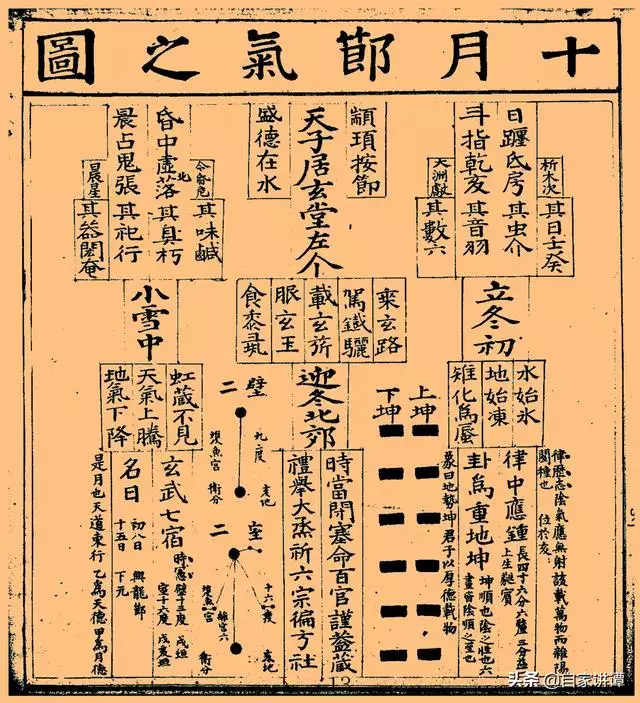 十月節氣之圖
析木次
日躔氐房
斗指乾亥
大淵獻
其日壬癸
其虫介
其音羽
其數六
顓頊按節
天子居玄堂左个
盛德在水
昏中虛
北落
晨占鬼張
晨星
其味鹹
其臭朽
其祀行
其器閎奄
立冬初
水始氷
地始凍
雉化為蜃
乘玄路
駕鐵驪
載玄旂
服玄玉
食黍彘
小雪中
虹藏不見
天氣上騰
地氣下降
律歷志陰氣應無射該載萬物而雜陽
閡種也 位於亥
律中應鍾
長四寸六分六釐三分益
上生蕤賓
卦為重地坤
坤順也陰之性也六
畫皆陰順之至也
象曰地勢坤君子以厚德載物
上坤
下坤
迎冬北郊
時當閉塞命百官謹蓋藏
禮舉大烝祈六宗徧方社
壁
二
九度
亥地
娵魚宮
衛分
室
二
十六度
亥地
娵魚宮
離宮六
衛分
玄武七宿
室十六度
名日
初八日 興龍節
十五日 下元
是月也天道東行 乙為天德甲為月德
13
头条@自家讲谭